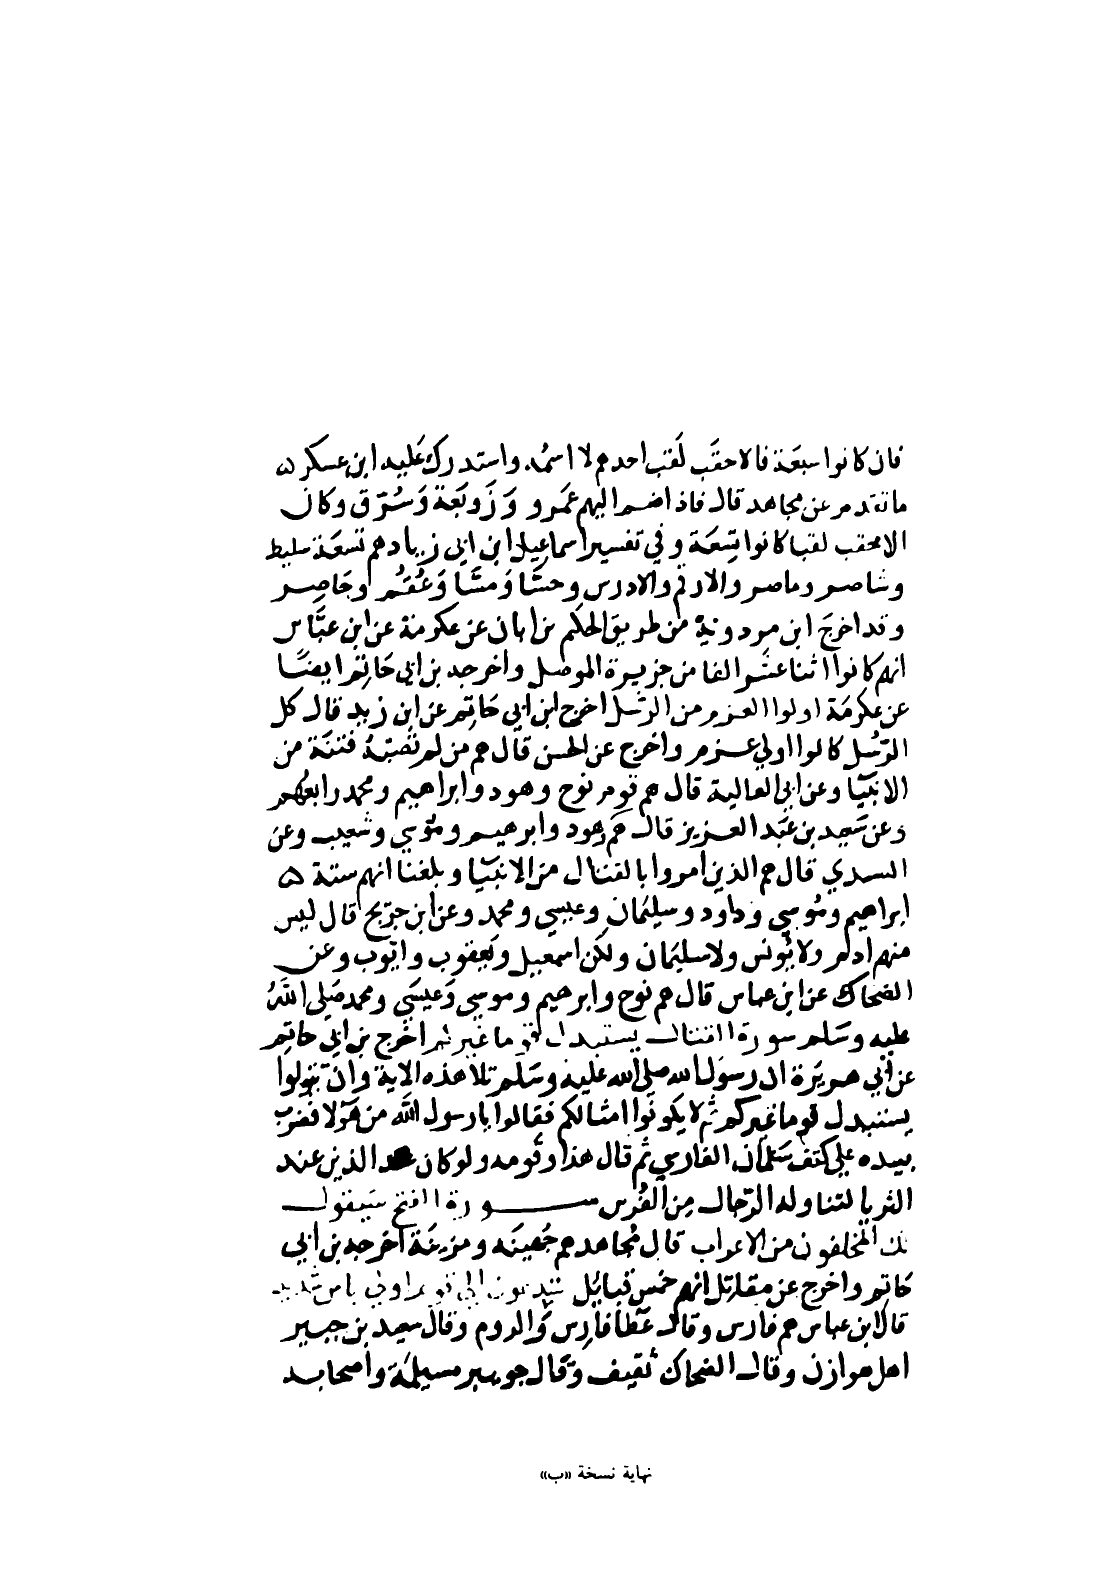 فان كانوا سبعة فالاحقب لقب احدهم لا اسمه واستدرك عليه ابن عسكر ه
ما تقدم عن مجاهد قال فاذا ضم اليهم عمرو وزوبعة وسرق وكان
الاحقب لقبا كانوا تسعة وفي تفسير اسماعيل ابن ابي زياد هم تسعة سليط
وشاصر وماصر والارقم والادرس وحسّا ومسّا وعُقيم وحاصر
وقد اخرج ابن مردوية من طريق الحكم بن ابان عن عكرمة عن ابن عبّاس
انهم كانوا اثنا عشر الفا من جزيرة الموصل واخرجه بن ابي حاتم ايضًا
عن عكرمة اولوا العزم من الرسل اخرج ابن ابي حاتم عن ابن زيد قال كل
الرّسُل كانوا اولي عزم واخرج عن الحسن قال هم من لم تصبّهُ فتنة من
الانبيّا وعن ابي العالية قال هم قوم نوح وهود وابراهيم ومحمد رابعُهم
وعن سَعيد بن عبد العزيز قال هم هود وابرهيم ومُوسي وشعيب وعن
السدي قال هم الذين امروا بالقتال من الانبيّا وبلغنا انهم ستة ه
ابراهيم ومُوسي وداود وسليمان وعيسي ومحمد وعن ابن جريج قال ليس
منهم ادم ولا يُونس ولا سليمان ولكن اسمعيل ويعقوب وايّوب وعن
الضحاك عن ابن عباس قال هم نوح وابرهيم وموسي وَعيسَي ومحمد صَلي اللهُ
عليه وسَلم سورة القتال يستبدل قوما غيركم اخرج بن ابي حاتم
عن أبي هريرة ان رسول الله صلي الله عليه وسَلم تلا هذه الاية وان تتولوا
يستبدل قوما غيركم ثم لا يكونوا امثالكم فقالوا يا رسول الله من هؤلا فضرب
بيده علي كتف سَلمان الفارسي ثم قال هذا وقومه ولو كان الذين عند
الثريا لتناوله الرّجال مِن الفُرس سورة الفتح سَيقول
لك المخلفون من الاعراب قال مُجاهد هم جُهينه ومزينة اخرجه بن ابي
حَاتم واخرج عن مقاتل انهم خمس قبايل ستدعون الي قوم اولي باس شديد
قال ابن عباس هم فارس وقال عَطا فارس والروم وقال سعيد بن جبير
اهل هوازن وقال الضحاك ثقيف وقال جويبر مسيلمة واصحابه
نهاية نسخة «ب»